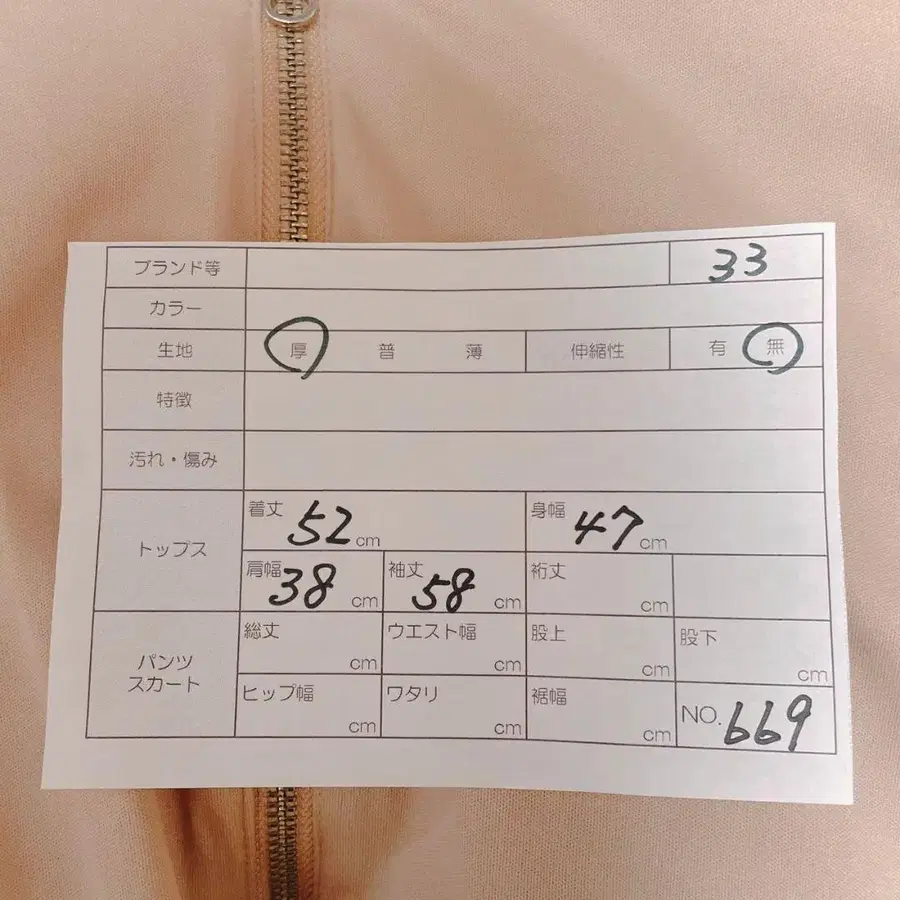 ブランド等 33
カラー
生地 厚 普 薄 伸縮性 有 無
特徴
汚れ・傷み
トップス
着丈 52 cm 身幅 47 cm
肩幅 38 cm 袖丈 58 cm 裄丈 cm
パンツ
スカート
総丈 cm ウエスト幅 cm 股上 cm 股下 cm
ヒップ幅 cm ワタリ cm 裾幅 cm NO. 669